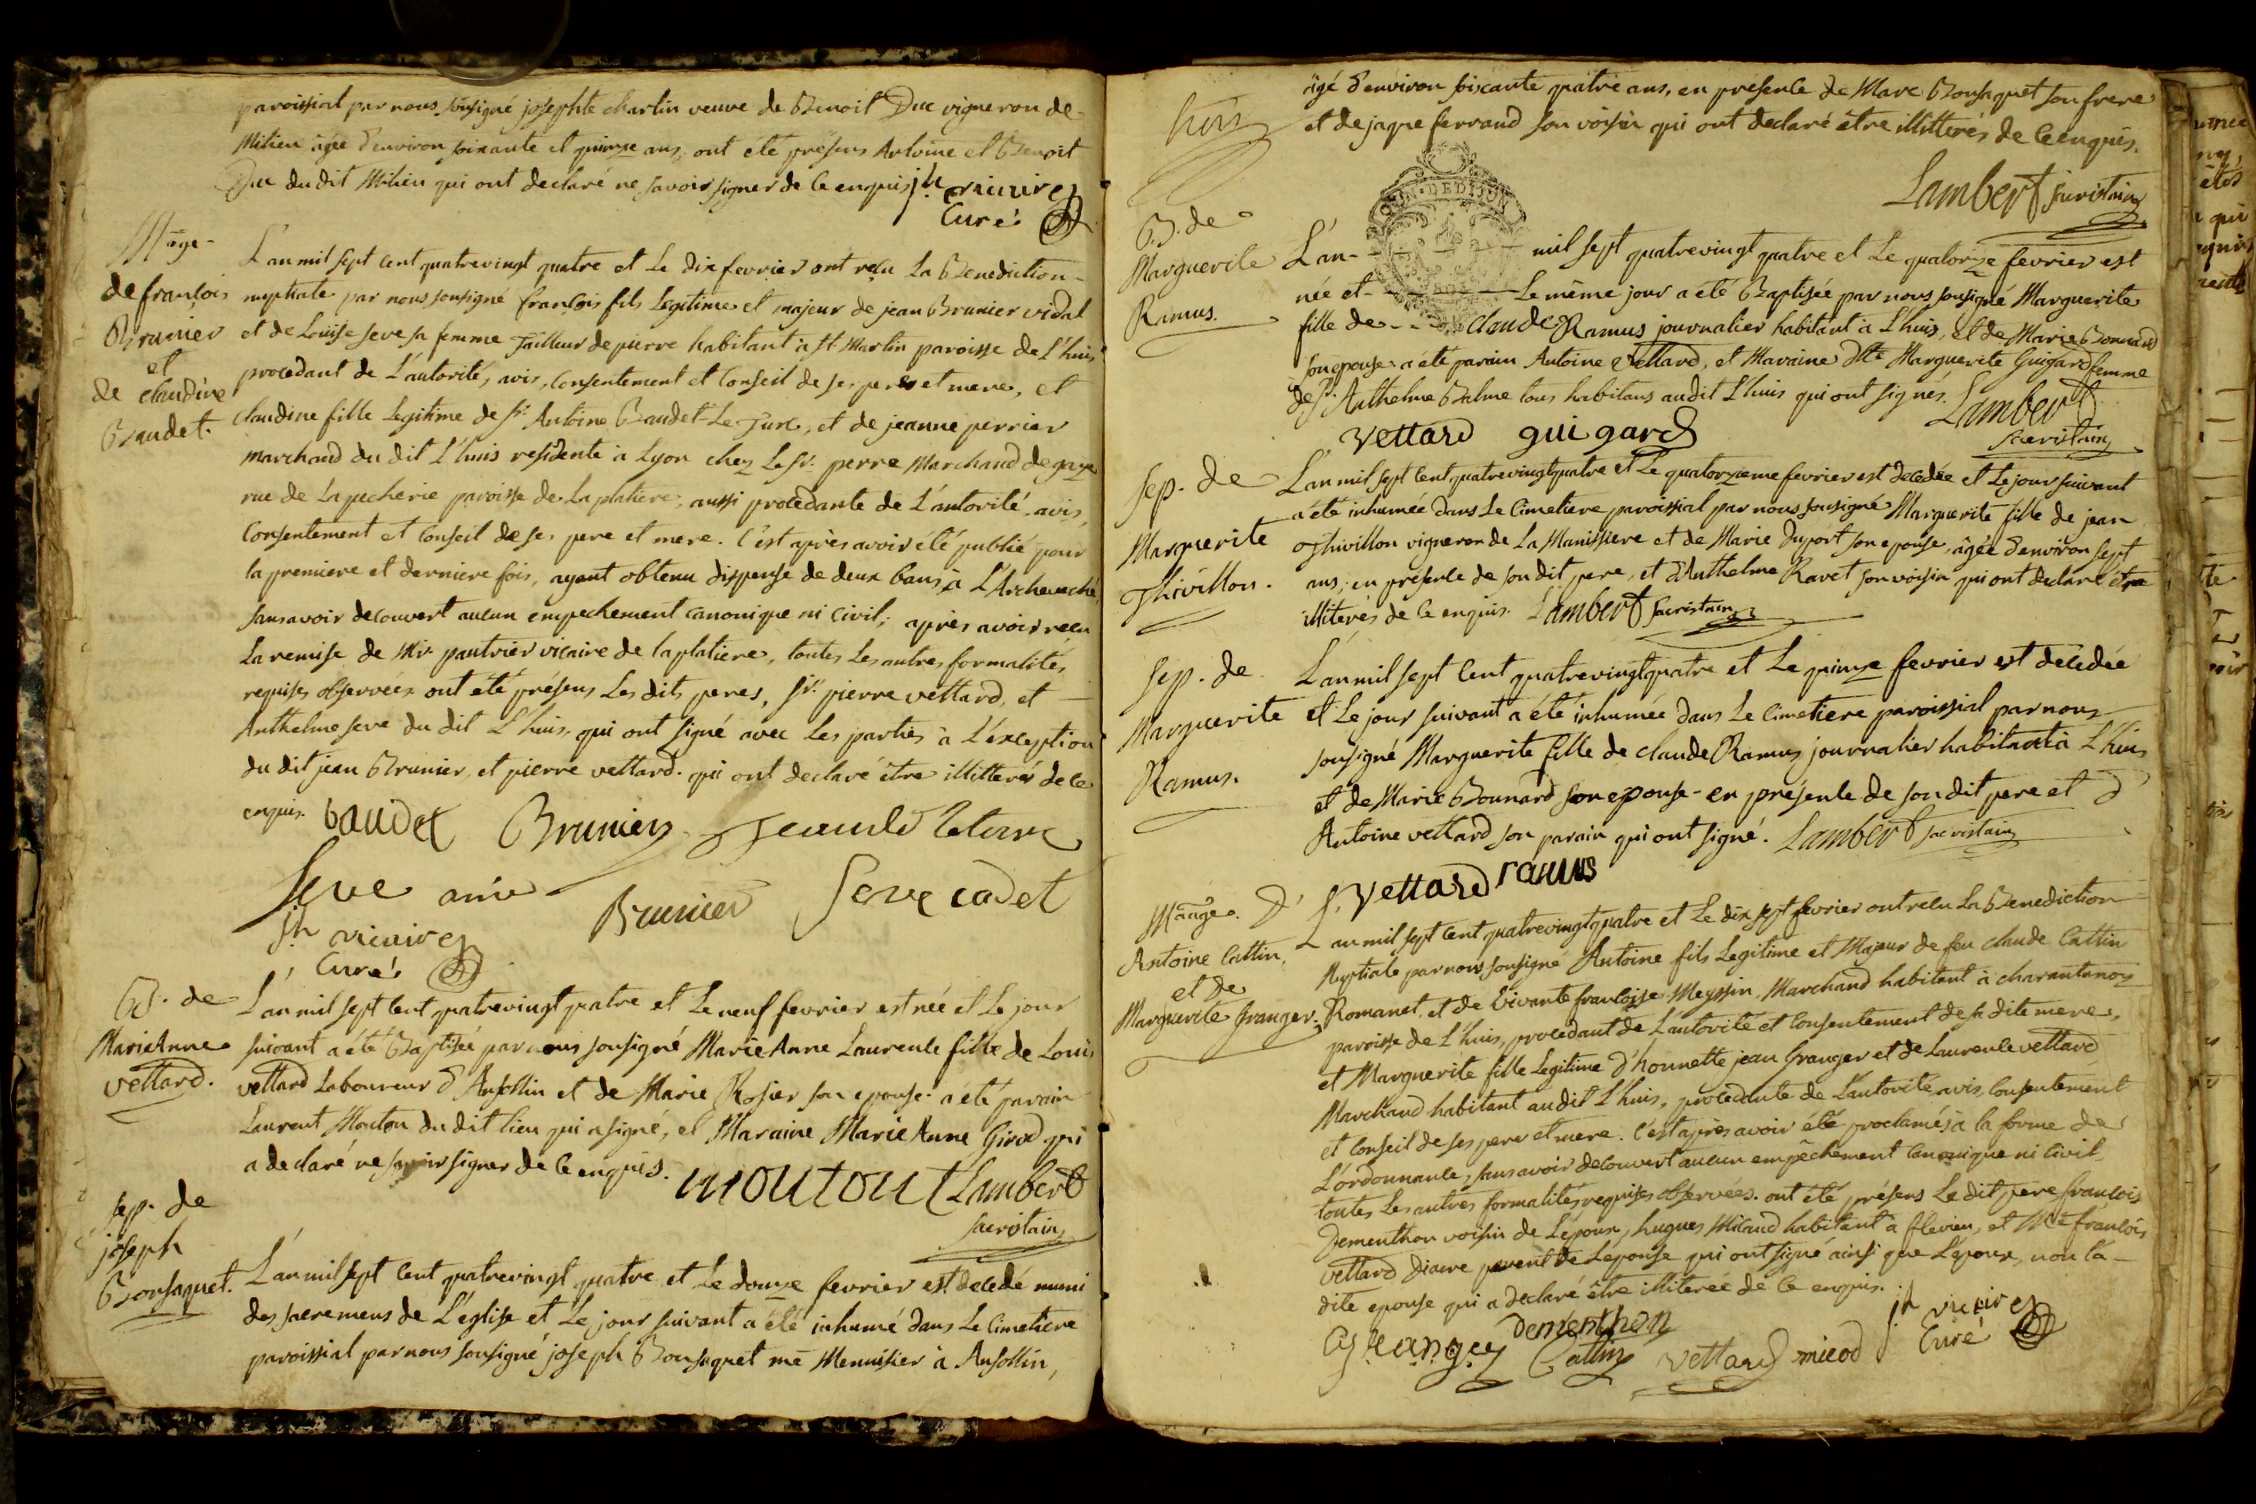 paroissial par nous sousigné josephte charlin veuve de Benoit Duc vigneron de
Milieu âgée d'environ soixante et quinze ans, ont été présens Antoine et Benoit
Duc du dit Milieu qui ont declaré ne savoir signer de ce enquis
Curé
Mage
de françois
Brunier
et
de claudine
Baudet.
L'an mil sept cent quatrevingt quatre et Le dix fevrier ont reçu La Benediction
nuptiale par nous sousigné françois fils Legitime et majeur de jean Brunier vidal
et de Louise seve sa femme Tailleur de pierre habitant à st Martin paroisse de L'huis
procedant de L'autorité, avis, consentement et Conseil de ses pere et mere, et
claudine fille Legitime de sr. Antoine Baudet Le Turc, et de jeanne perrier
marchand du dit L'huis residente à Lyon chez Le Sr. perre Marchand de gaze
rue de La pecherie paroisse de La platiere, aussi procedante de L'autorité, avis,
Consentement et Conseil de ses pere et mere. C'est après avoir été publié pour
la premiere et derniere fois, ayant obtenu dispense de deux bans à L'Archeveché
sans avoir decouvert aucun empechement canonique ni civil, après avoir reçu
La remise de Mr. pautrier vicaire de la platiere, toutes Les autres formalités
requises observées ont été présens Les dits peres, sr. pierre vettard, et
Anthelme seve du dit L'huis qui ont signé avec Les parties à L'exception
du dit jean Brunier, et pierre vettard qui ont declaré être illitterés de ce
enquis. baudet Brunier
Seve Brunier Seve cadet
Curé
B. de
Marie Anne
vettard.
L'an mil sept cent quatrevingt quatre et Le neuf fevrier est née et Le jour
suivant a été Baptisée par nous sousigné Marie Anne Laurence fille de Louis
vettard Laboureur d'Ansollin et de Marie Rosier son epouse. a été parain
Laurent Mouton du dit lieu qui a signé, et Maraine Marie Anne Girod qui
a declaré ne savoir signer de ce enquis. mouton Lambert
sacristain
sep. de
joseph
Bonsaquet.
L'an mil sept cent quatrevingt quatre et Le douze fevrier est decedé muni
des sacremens de L'eglise et Le jour suivant a été inhumé dans Le Cimetiere
paroissial par nous sousigné joseph Bonsaquet me Menuisier à Ansollin,
âgé d'environ soixante quatre ans, en présence de Marc Bonsaquet son frere
et de jaque ferrand son voisin qui ont declaré être illitterés de ce enquis.
Lambert sacristain
B. de
Marguerite
Ramus.
L'an mil sept quatrevingt quatre et Le quatorze fevrier est
née et Le même jour a été Baptisée par nous sousigné Marguerite
fille de claude Ramus journalier habitant à L'huis, et de Marie Bonnard
son epouse a été parain Antoine vettard, et Maraine Dlle Marguerite Guigard femme
de sr. Anthelme Balme tous habitans au dit L'huis qui ont signés. Lambert
vettard guigard sacristain
sep. de
Marguerite
Thivillon.
L'an mil sept cent quatrevingt quatre et Le quatorzieme fevrier est decedée et Le jour suivant
a été inhumée dans Le Cimetiere paroissial par nous sousigné Marguerite fille de jean
Thivillon vigneron de La Manissiere et de Marie Duport son epouse, âgée d'environ sept
ans, en présence de son dit pere, et d'Anthelme Ravet son voisin qui ont declaré être
illiterés de ce enquis. Lambert sacristain
sep. de
Marguerite
Ramus.
L'an mil sept cent quatrevingt quatre et Le quinze fevrier est decedée
et Le jour suivant a été inhumée dans Le Cimetiere paroissial par nous
sousigné Marguerite fille de claude Ramus journalier habitant à L'huis
et de Marie Bonnard son epouse en présence de son dit pere et d'
Antoine vettard son parain qui ont signé. Lambert sacristain
Vettard ramus
Mage. d'
Antoine Cattin,
et de
Marguerite Granger.
L'an mil sept cent quatrevingt quatre et Le dix sept fevrier ont reçu La Benediction
Nuptiale par nous sousigné Antoine fils Legitime et Majeur de feu claude Cattin
Romanet, et de vivante françoise Meyssin Marchand habitant à charantonoz
paroisse de L'huis, procedant de L'autorité et consentement de sa dite mere,
et Marguerite fille Legitime d'honnette jean Granger et de Laurence vettard
Marchand habitant au dit L'huis, procedante de L'autorité, avis, consentement
et Conseil de ses pere et mere. C'est après avoir été proclamés à la forme de
L'ordonnance, sans avoir decouvert aucun empêchement canonique ni Civil
toutes Les autres formalités requises observées. ont été présens Le dit pere françois
Dementhon voisin de L'epoux, hugues Micaud habitant à flevieu, et Me françois
Vettard Diacre parent de L'epouse qui ont signé ainsi que L'epoux, non la
dite epouse qui a declaré être illiterée de ce enquis.
Granger Dementhon Cattin vettard micod Curé